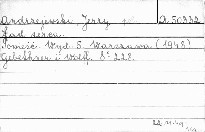 Andrzejewski Jerzy A.50332
Ład serca.
Powieść. Wyd. 5. Warszawa (1949)
Gebethner i Wolff, S. 228.